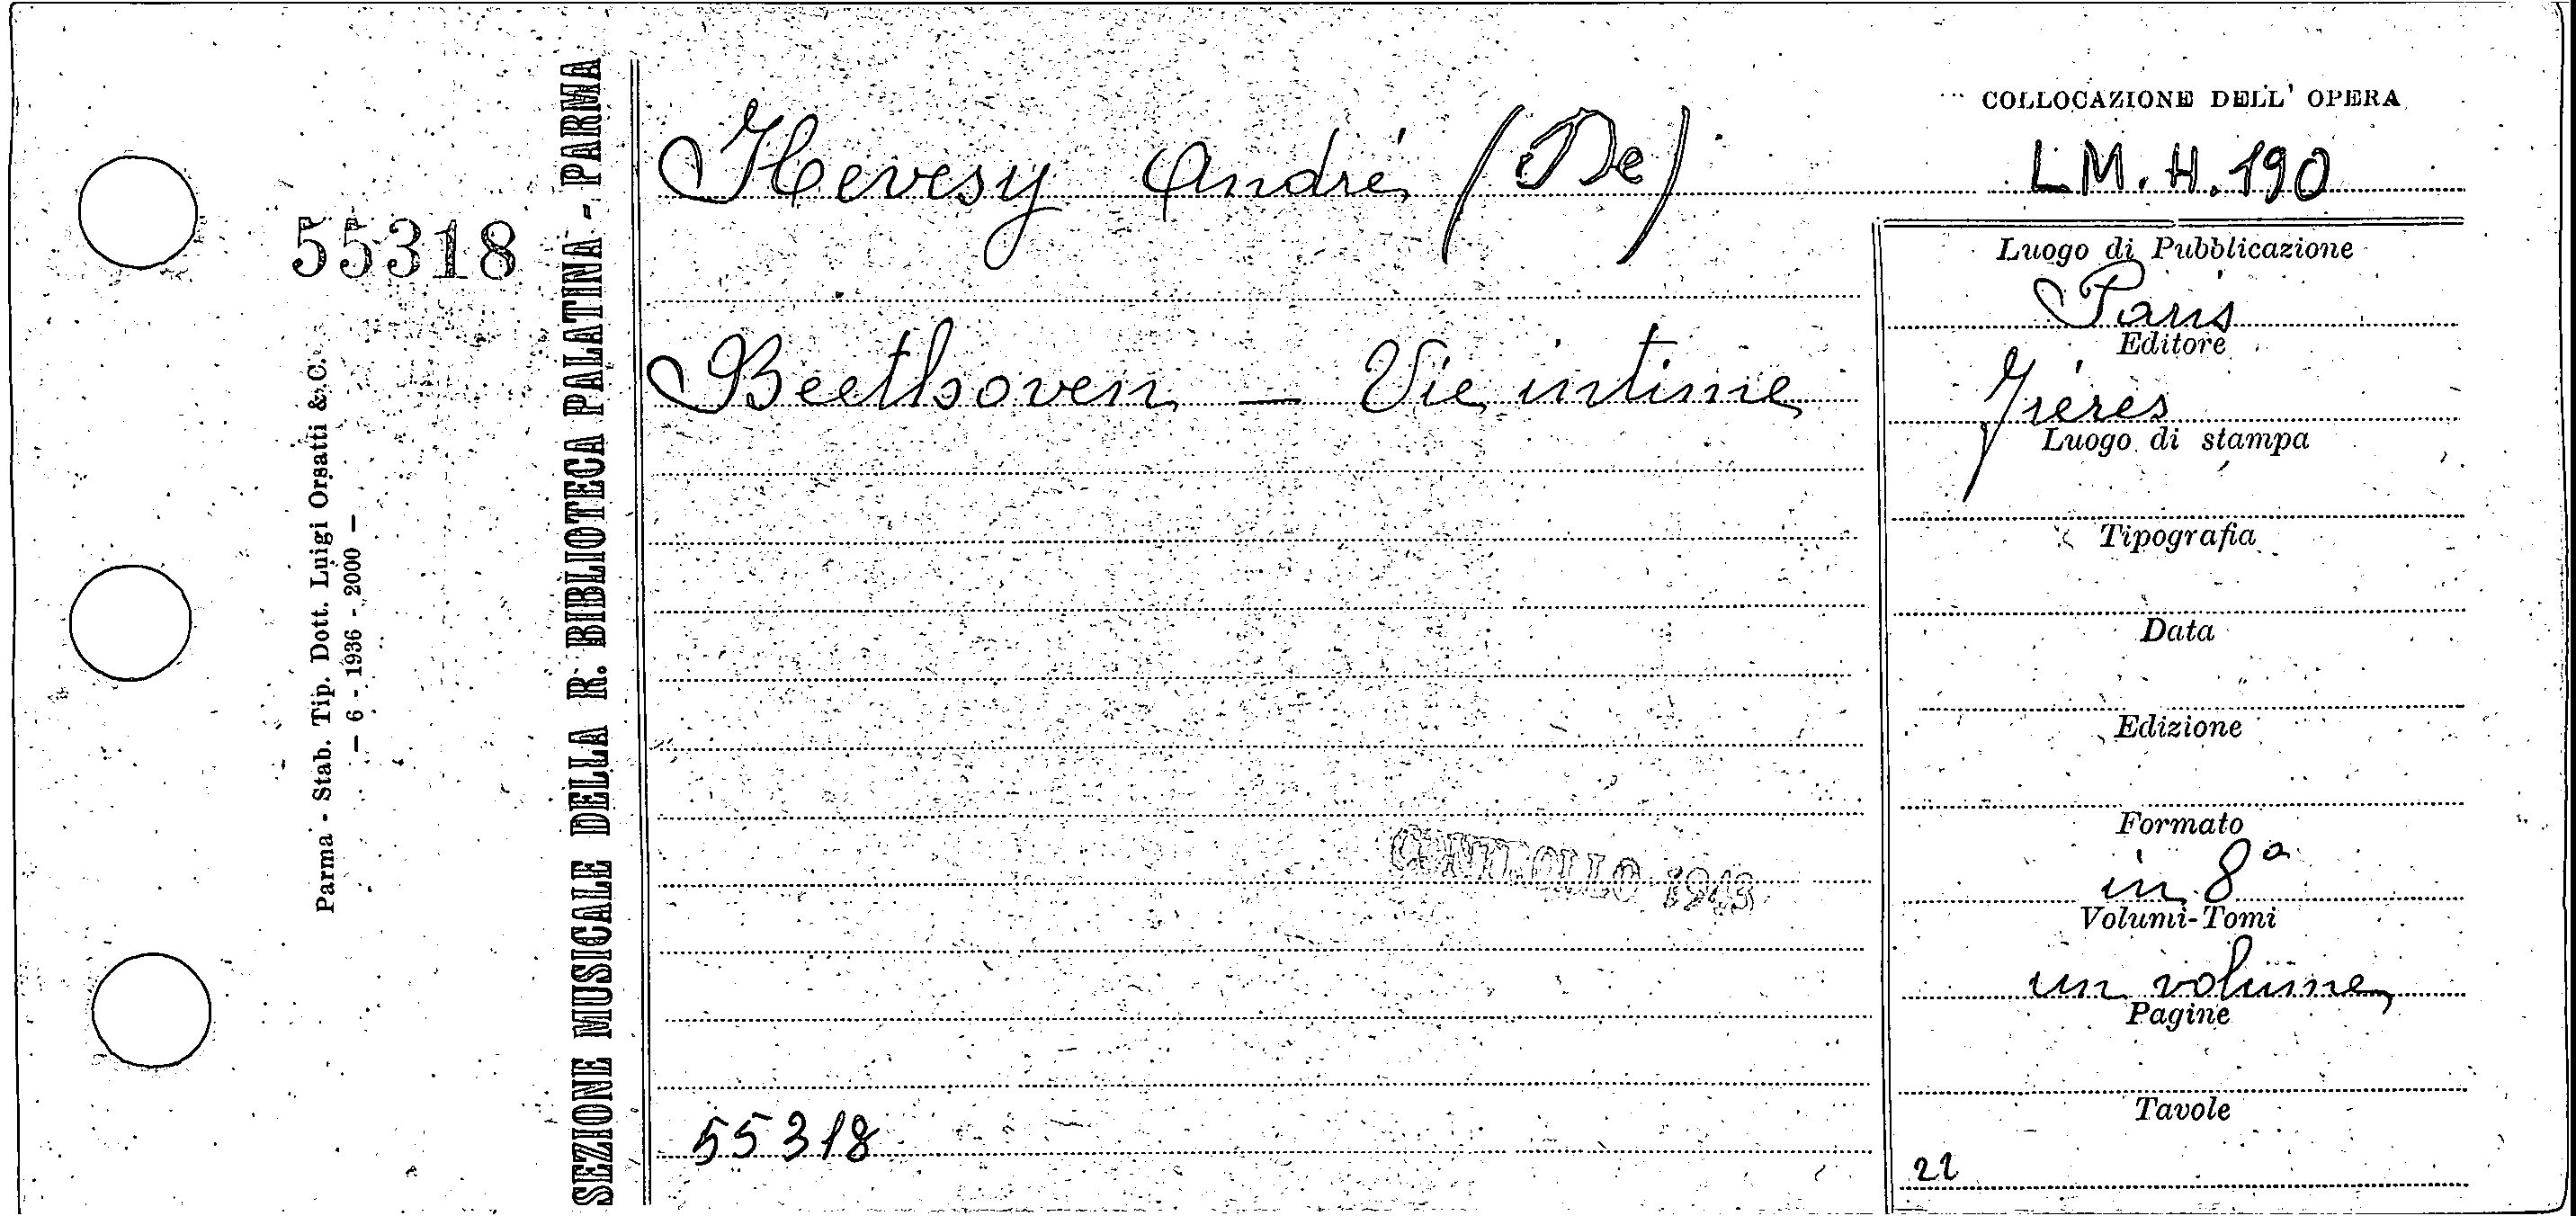 COLLOCAZIONE DELL' OPERA
Hevesy André (De)
L M. H. 190
55318
Parma - Stab. Tip. Dott. Luigi Orsatti & C.
— 6 - 1936 - 2000 —
SEZIONE MUSICALE DELLA R. BIBLIOTECA PALATINA - PARMA
Beethoven — Vie intime
Luogo di Pubblicazione
Paris
Editore
Frères
Luogo di stampa
Tipografia
Data
Edizione
Formato
in 8ª
Volumi-Tomi
un volume
Pagine
Tavole
CONTROLLO 1943
55318
22